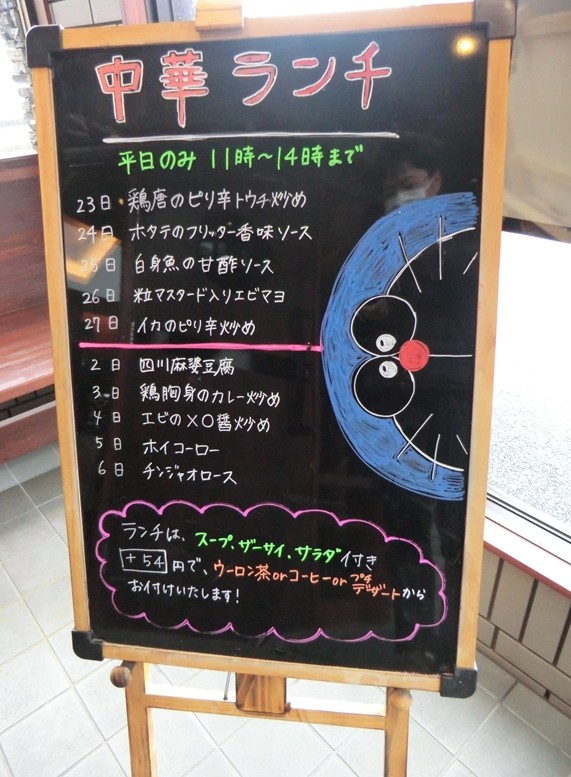 中華ランチ
平日のみ 11時～14時まで
23日 鶏唐のピリ辛トウチ炒め
24日 ホタテのフリッター香味ソース
25日 白身魚の甘酢ソース
26日 粒マスタード入りエビマヨ
27日 イカのピリ辛炒め
2日 四川麻婆豆腐
3日 鶏胸身のカレー炒め
4日 エビのXO醤炒め
5日 ホイコーロー
6日 チンジャオロース
ランチは、スープ、ザーサイ、サラダ付き
+54円で、ウーロン茶orコーヒーorプチデザートから
お付けいたします!